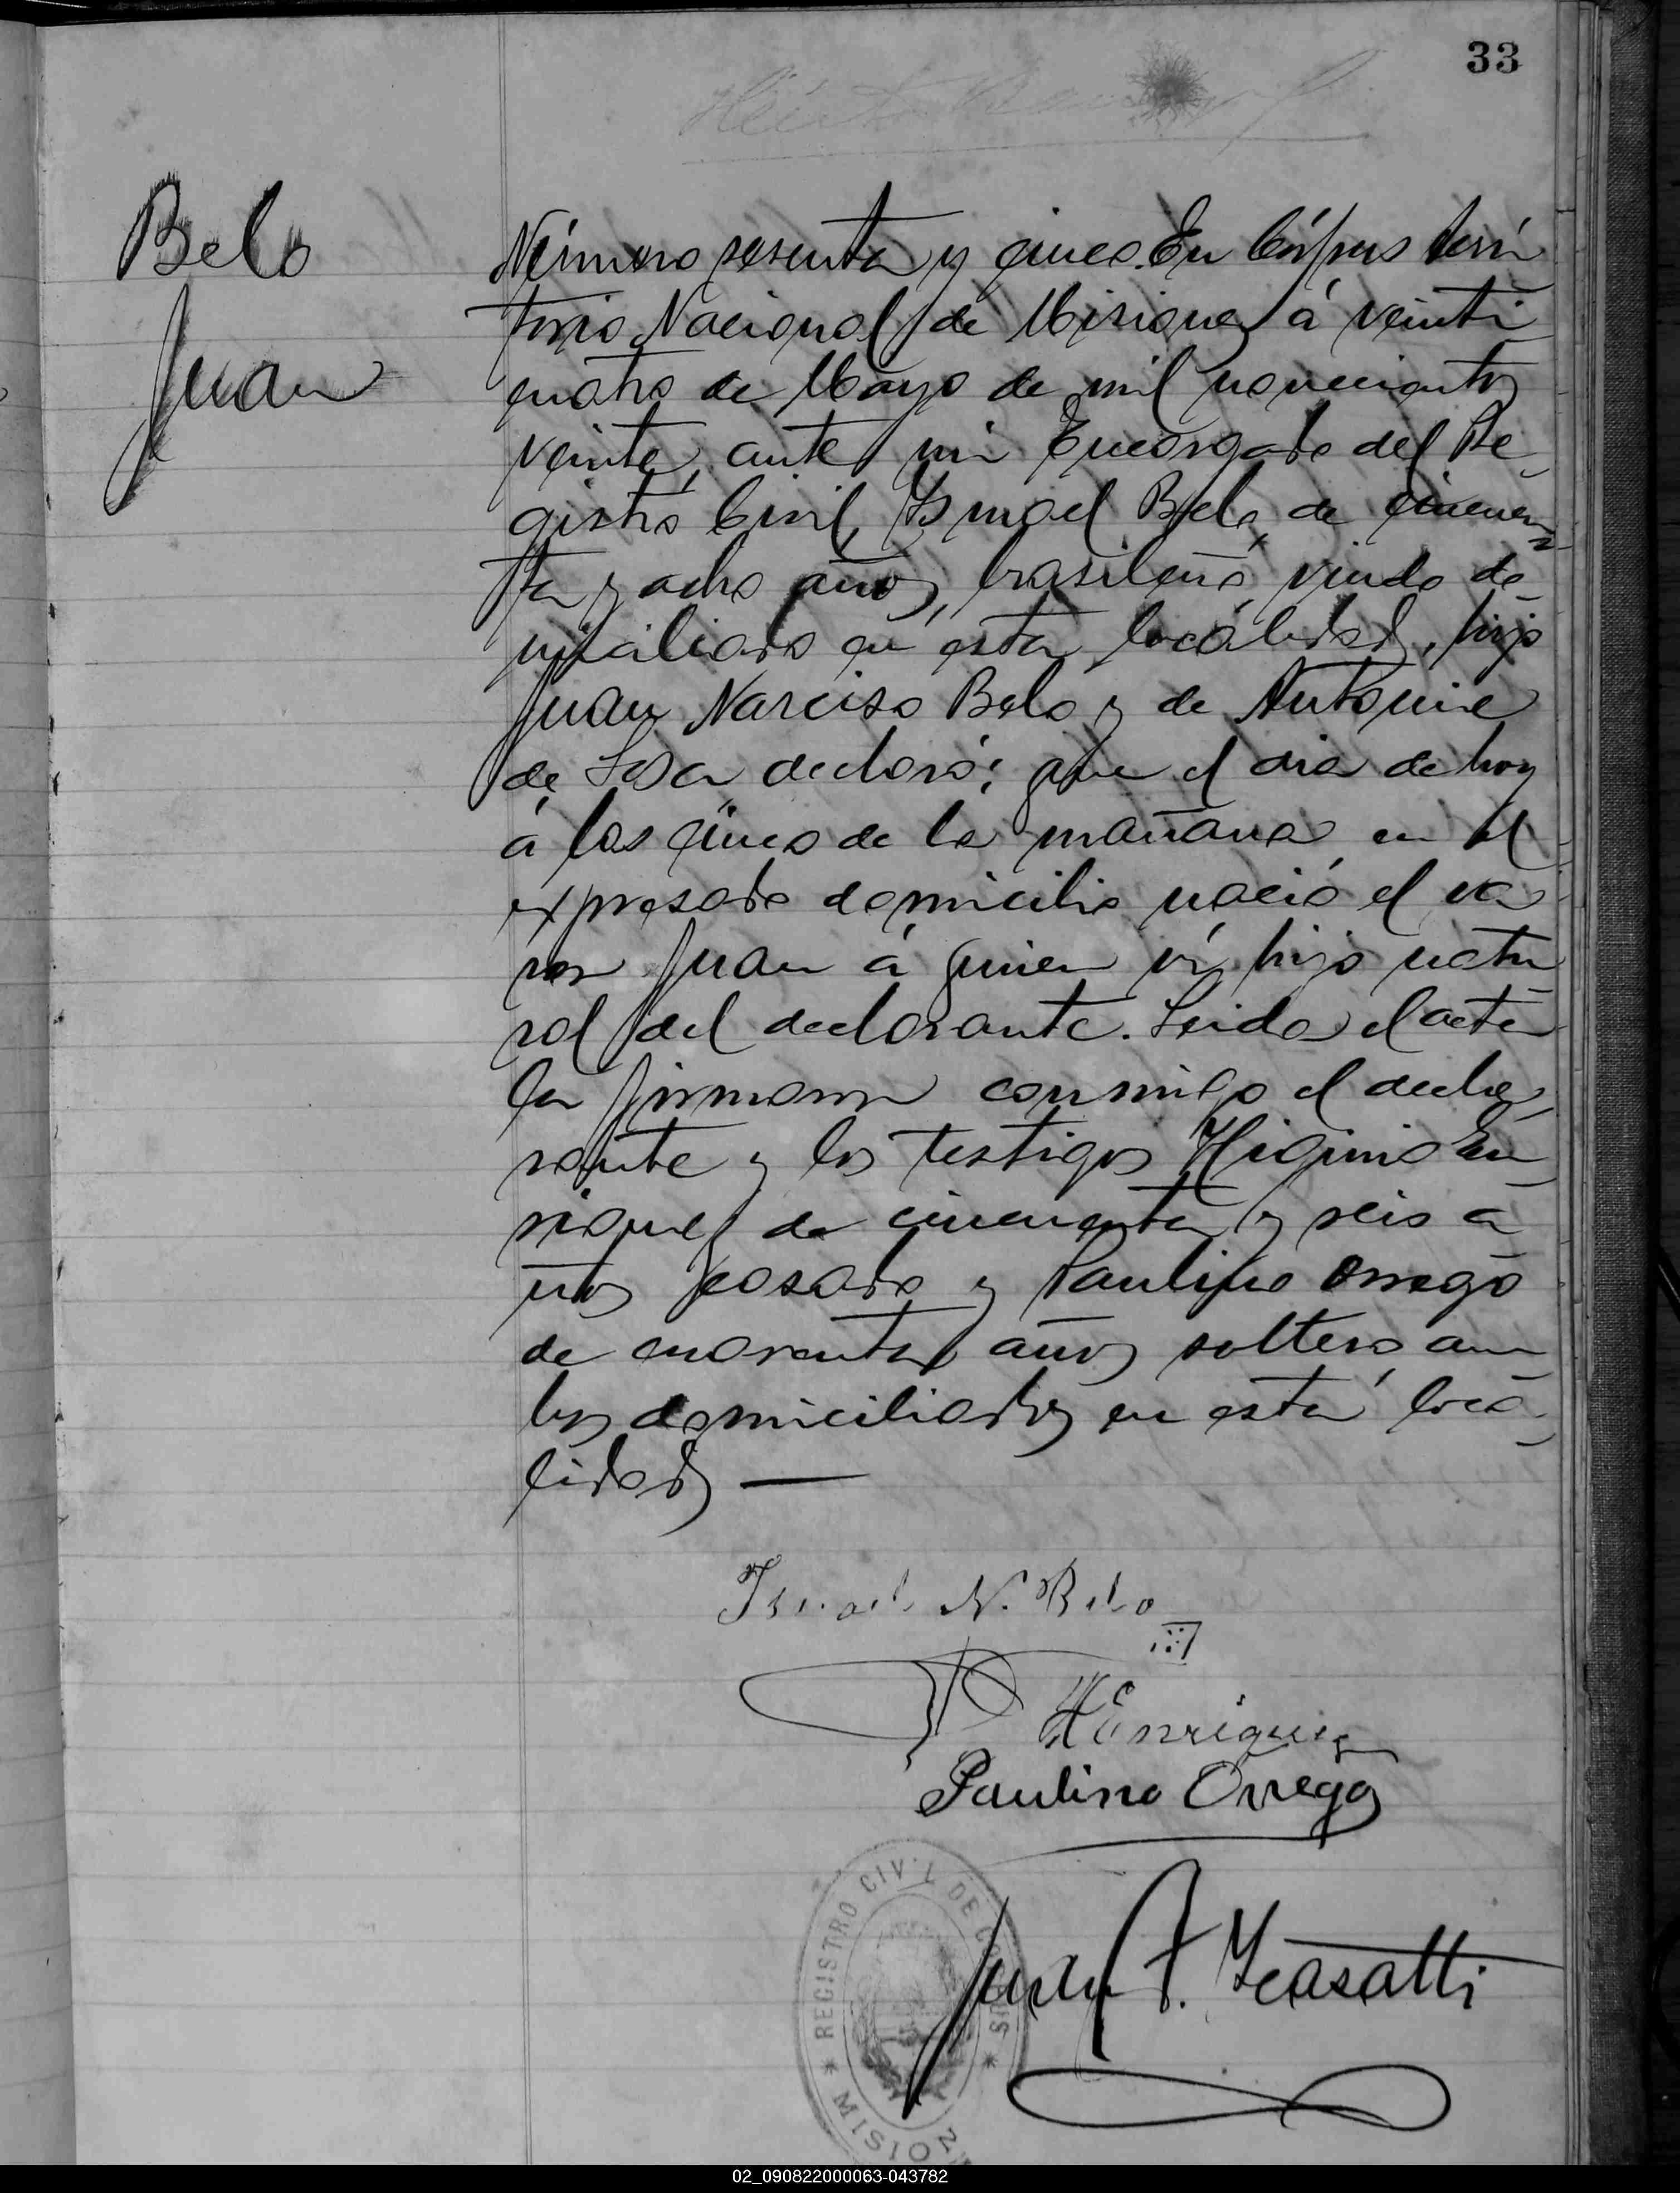 33
Belo
Juan
Número sesenta y cinco. En Córpus Terri
torio Nacional de Misiones á veinti
cuatro de Mayo de mil novecientos
veinte, ante mi Encargado del Re
gistro Civil, Ismael Belo, de cincuen
ta y ocho años, brasileño, viudo do
miciliado en esta localidad, hijo
Juan Narciso Belo y de Antonia
de declaró: que el dia de hoy
á las cinco de la mañana en el
expresado domicilio nació el va
ron Juan á quien ví, hijo natu
ral del declarante. Leida el acta
la firmaron conmigo el decla
rante y los testigos Higinio En
riquez de cincuenta y seis a
ños casado y Paulino Orrego
de cuarenta años soltero am
bos domiciliados en esta loca
lidad —
Ismael N. Belo
HEnriquez
Paulino Orrego
REGISTRO CIVIL DE CORPUS
* MISIONES *
Juan F.